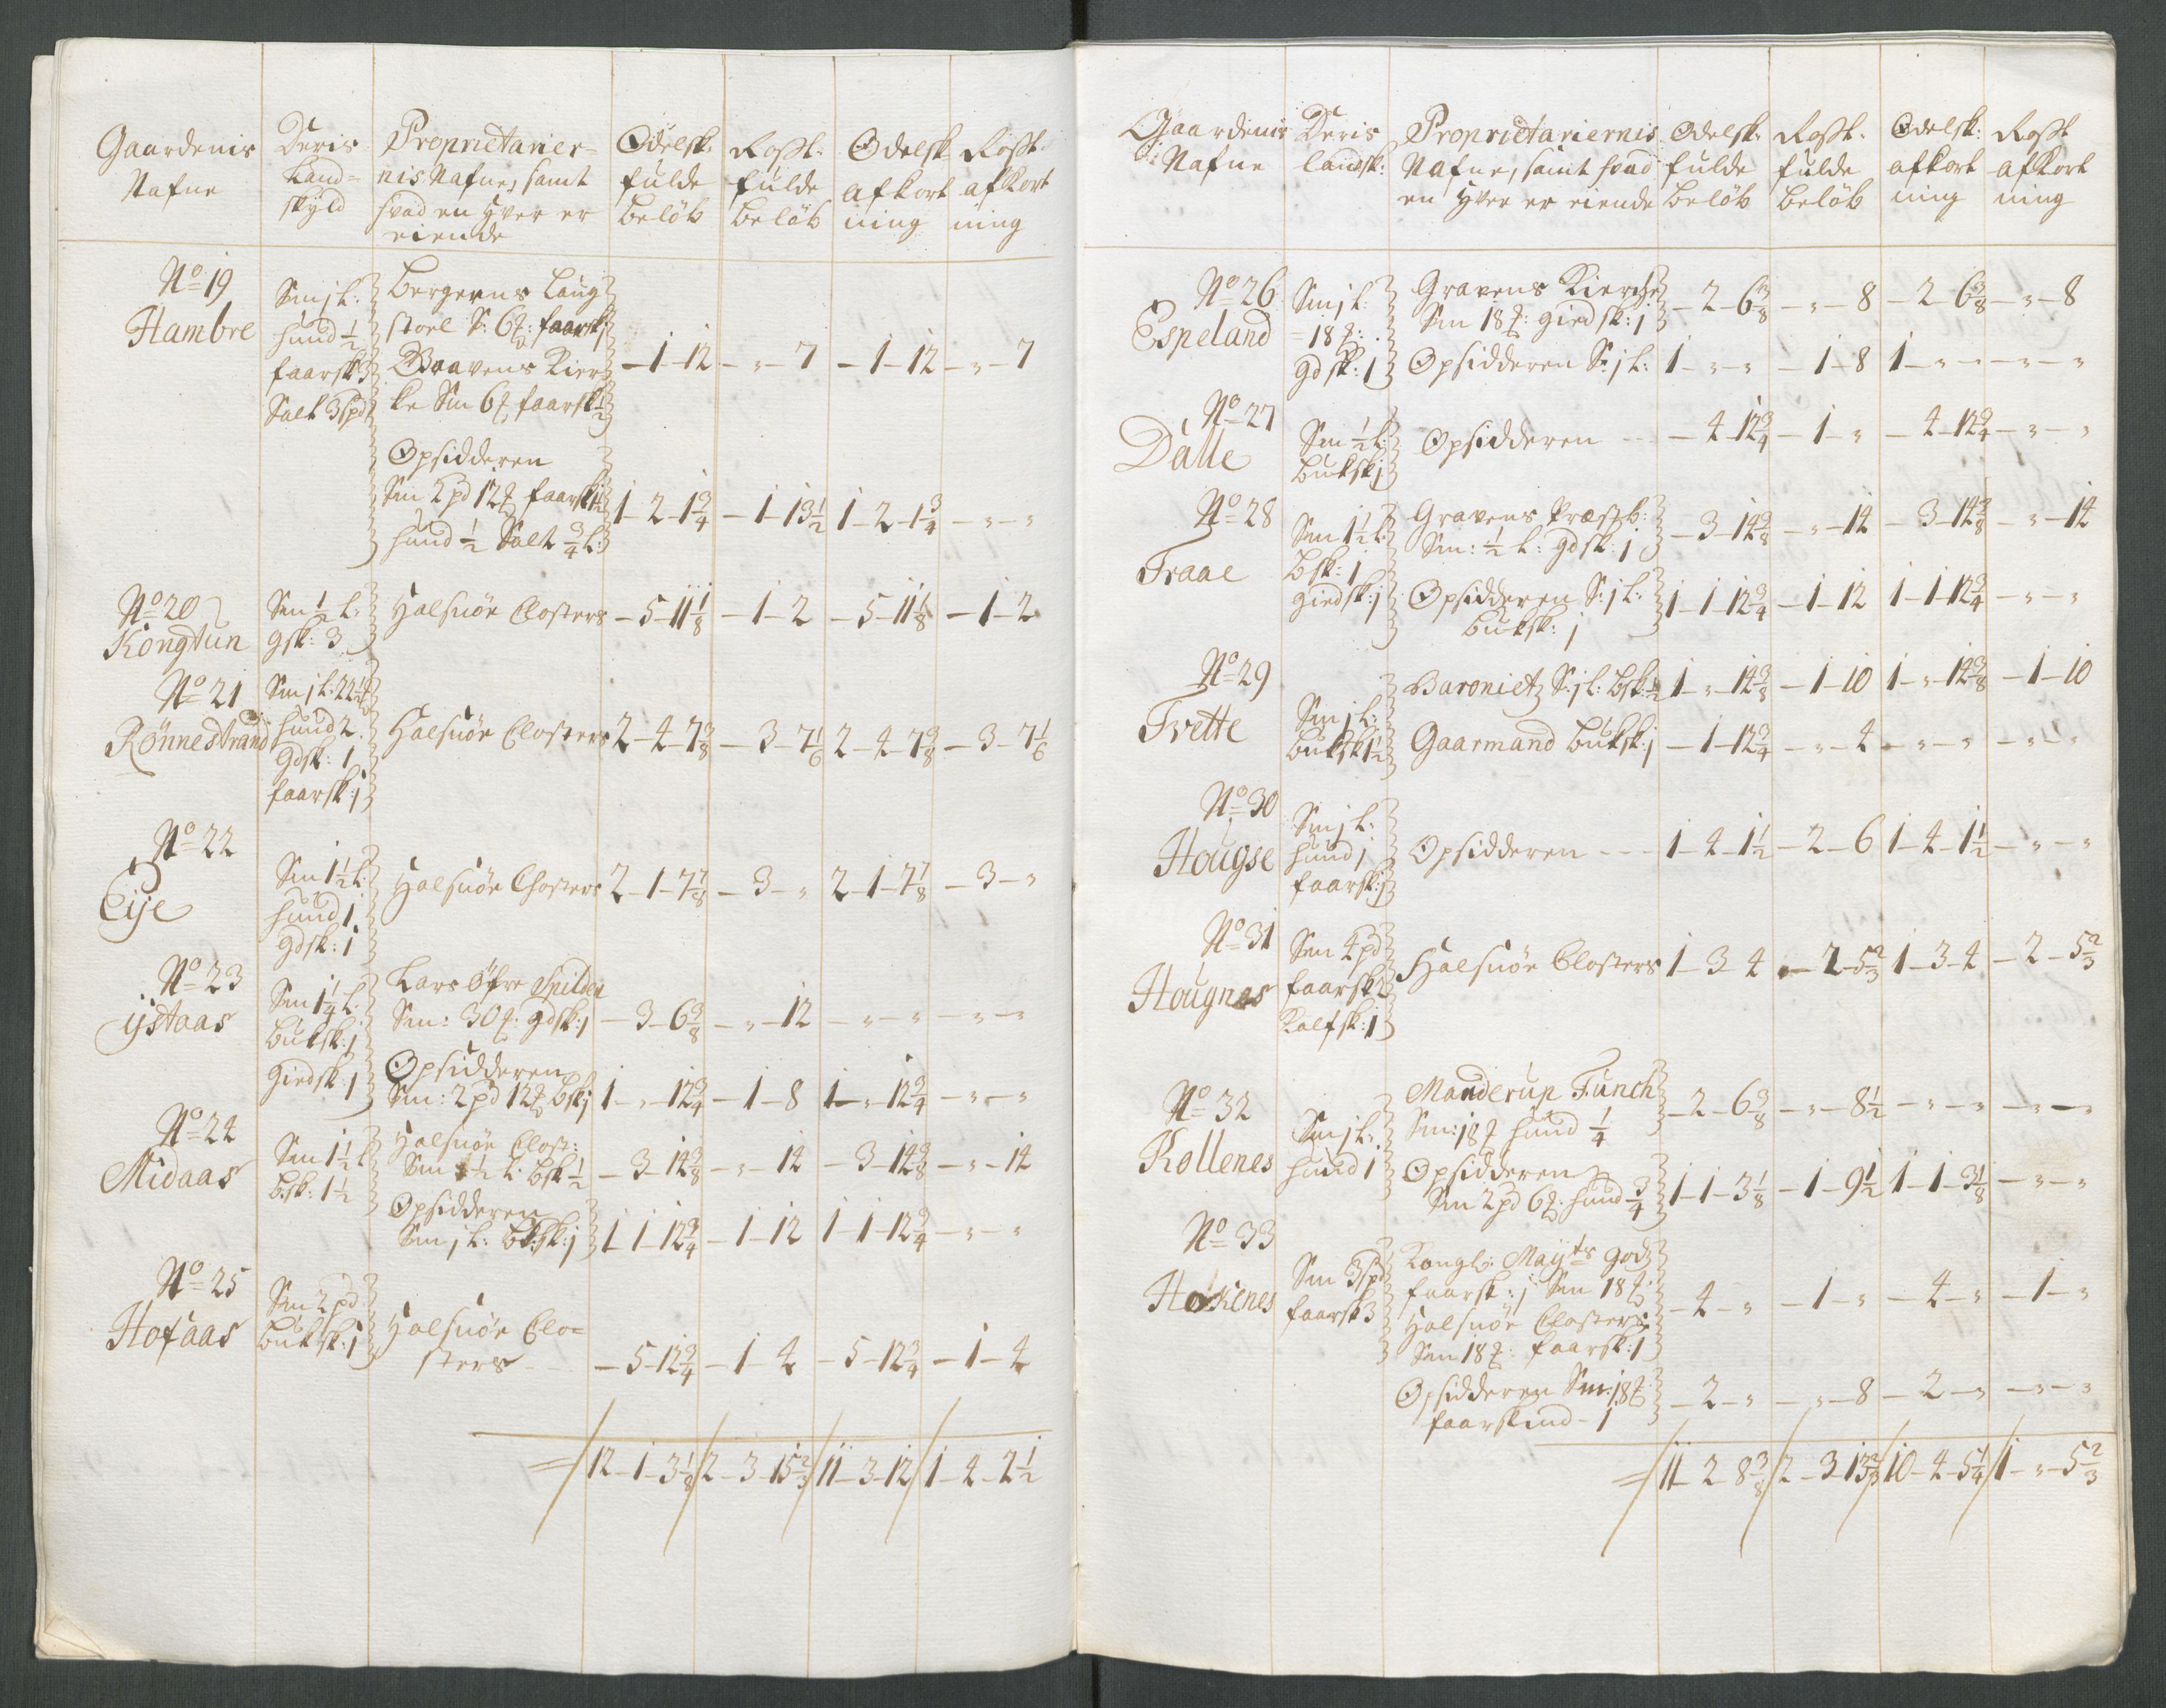 Gaardenis Nafne | Deris Landskyld | Proprietariernis Nafne, samt hvad en hver er eiende | Odelsk: fulde beløb | Rosst: fulde beløb | Odelsk: afkortning | Rosst: afkortning
No 19 Hambre | Sm j L: hund ½ faarsk 3 Salt 3 spd | Bergens Laug
stoel S: 6 : faarsk j
Kier
ke Sm 6 faarsk ½ | - 1 - 12 | - " - 7 | - 1 - 12 | - " - 7
Opsidderen
Sm 2 pd 12 faarsk 1½
hund ½ Salt ¾ L: | 1 - 2 - 1¾ | - 1 - 13½ | 1 - 2 - 1¾ | - " - "
No 20 Kongtun | Sm ½ L: gsk: 3 | Halsnöe Closters | - 5 - 11⅛ | - 1 - 2 | - 5 - 11⅛ | - 1 - 2
No 21 Rönnestrand | Sm j L: 22½ hund 2. gdsk: 1 faarsk: j | Halsnöe Closters | 2 - 4 - 7⅜ | - 3 - 7⅙ | 2 - 4 - 7⅜ | - 3 - 7⅙
No 22 Eije | Sm 1½ L: hund 1 gdsk: 1 | Halsnöe Closters | 2 - 1 - 7⅞ | - 3 - " | 2 - 1 - 7⅞ | - 3 - "
No 23 ijstaas | Sm 1¼ L: buksk: j giedsk: 1 | Lars Öfre Spilden
Sm: 30 : gdsk: 1 | - 3 - 6⅜ | - " - 12 | - " - " | - " - "
Opsidderen
Sm: 2 pd 12 bsk: j | 1 - " - 12¾ | - 1 - 8 | 1 - " - 12¾ | - " - "
No 24 Midaas | Sm 1½ L bsk: 1½ | Halsnöe Clost:
Sm ½ L: bsk ½ | - 3 - 14⅜ | - " - 14 | - 3 - 14⅜ | - " - 14
Opsidderen
Sm j L: bsk: j | 1 - 1 - 12¾ | - 1 - 12 | 1 - 1 - 12¾ | - " - "
No 25 Hofaas | Sm 2 pd buksk: 1 | Halsnöe Clo=
sters | - 5 - 12¾ | - 1 - 4 | - 5 - 12¾ | - 1 - 4
= / 12 - 1 - 3⅛ / 2 - 3 - 15⅔ / 11 - 3 - 12 / 1 - 4 - 2½
Gaardenis Nafne | Deris landsk: | Proprietariernis Nafne, samt hvad en hver er eiende | Odelsk: fulde beløb | Rosst: fulde beløb | Odelsk: afkortning | Rosst afkortning
No 26 Espeland | Sm j L: - 18 : gdsk: 1 | Gravens Kierche
Sm 18 : giedsk: 1 | - 2 - 6⅜ | - " - 8 | - 2 - 6⅜ | - " - 8
Opsidderen S: j L: | 1 - " - " | - 1 - 8 | 1 - " - " | - " - "
No 27 Dalle | Sm ½ L: buksk j | Opsidderen | - 4 - 12¾ | - 1 - " | - 4 - 12¾ | - " - "
No 28 Traae | Sm 1½ L: bsk: 1 giedsk: j | Gravens Præstb:
Sm: ½ L: gdsk: 1 | - 3 - 14⅜ | - " - 14 | - 3 - 14⅜ | - " - 14
Opsidderen S: j L:
buksk: j | 1 - 1 - 12¾ | - 1 - 12 | 1 - 1 - 12¾ | - " - "
No 29 Tvette | Sm j L: buksk 1½ | Baroniet S: j L: bsk: ½ | 1 - " - 14⅜ | - 1 - 10 | 1 - " - 14⅜ | - 1 - 10
Gaarmand buksk: j | - 1 - 12¾ | - " - 4 | - " - " | - " - "
No 30 Hougse | Sm j L: hund 1 faarsk: j | Opsidderen | 1 - 4 - 1½ | - 2 - 6 | 1 - 4 - 1½ | - " - "
No 31 Hougnes | Sm 4 pd faarsk 2 Kalfsk: 1 | Halsnöe Closters | 1 - 3 - 4 | - 2 - 5⅔ | 1 - 3 - 4 | - 2 - 5⅔
No 32 Kollenes | Sm j L: hund 1 | Manderup Funch
Sm: 18 hund ¼ | - 2 - 6⅜ | - " - 8½ | - " - " | - " - "
Opsidderen
Sm 2 pd 6 : hund ¾ | 1 - 1 - 3⅛ | - 1 - 9½ | 1 - 1 - 3⅛ | - " - "
No 33 Hokenes | Sm 3 spd faarsk 3 | Kongl: Mayts god
faarsk: j Sm 18 :
Halsnöe Closters
Sm 18 : faarsk: 1 | - 4 - " | - 1 - " | - 4 - " | - 1 - "
Opsidderen Sm: 18
faarskind - 1 | - 2 - " | - " - 8 | - 2 - " | - " - "
= / 11 - 2 - 8⅜ / 2 - 3 - 13⅔ / 10 - 4 - 5¼ / 1 - " - 5⅔